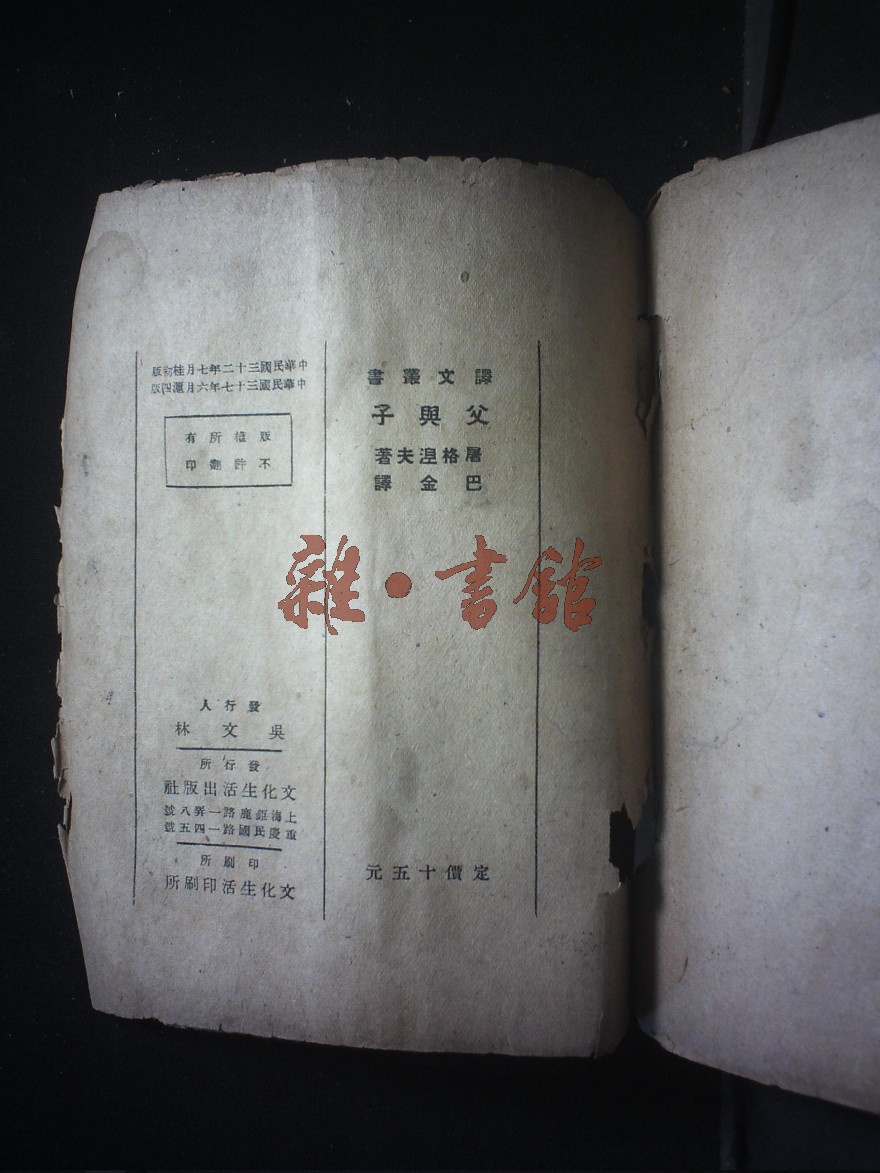 譯文叢書
父與子
屠格涅夫著
巴金譯
定價十五元
中華民國三十二年七月桂初版
中華民國三十七年六月滬四版
版權所有
不許翻印
發行人
吳文林
發行所
文化生活出版社
上海鉅鹿路一弄八號
重慶民國路一四五號
印刷所
文化生活印刷所
雜·書館